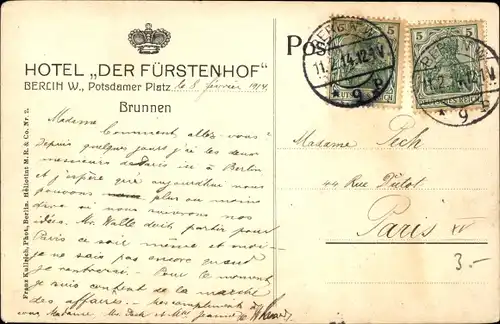 HOTEL „DER FÜRSTENHOF"
BERLIN W., Potsdamer Platz le 8 février 1914
Brunnen
Madame
Comment allez-vous?
Depuis quelques jours j'ai les deux
messieurs de Paris ici à Berlin
et j'espère qu'aujourd'hui nous
pouvons plus ou moins
dire où nous suivrons nos
idées. Mr. Walte doit partir pour
Paris ce soir même et moi
je ne sais pas encore quand
je rentrerai. Pour le moment
je suis content de la marche
des affaires.
vous Madame, Mr. Pech et Mlle Jeanne
Franz Kuligich, Phot., Berlin. Héliotint M.R. & Co. Nr. 2.
Pos
5
5
BERLIN W.
11.2.14.12-1V
* 9 g
BERLIN W.
11.2.14.12-1V
* 9 g
DEUTSCHES REICH
Madame Pech
44 Rue Dutot
Paris XV
3.-